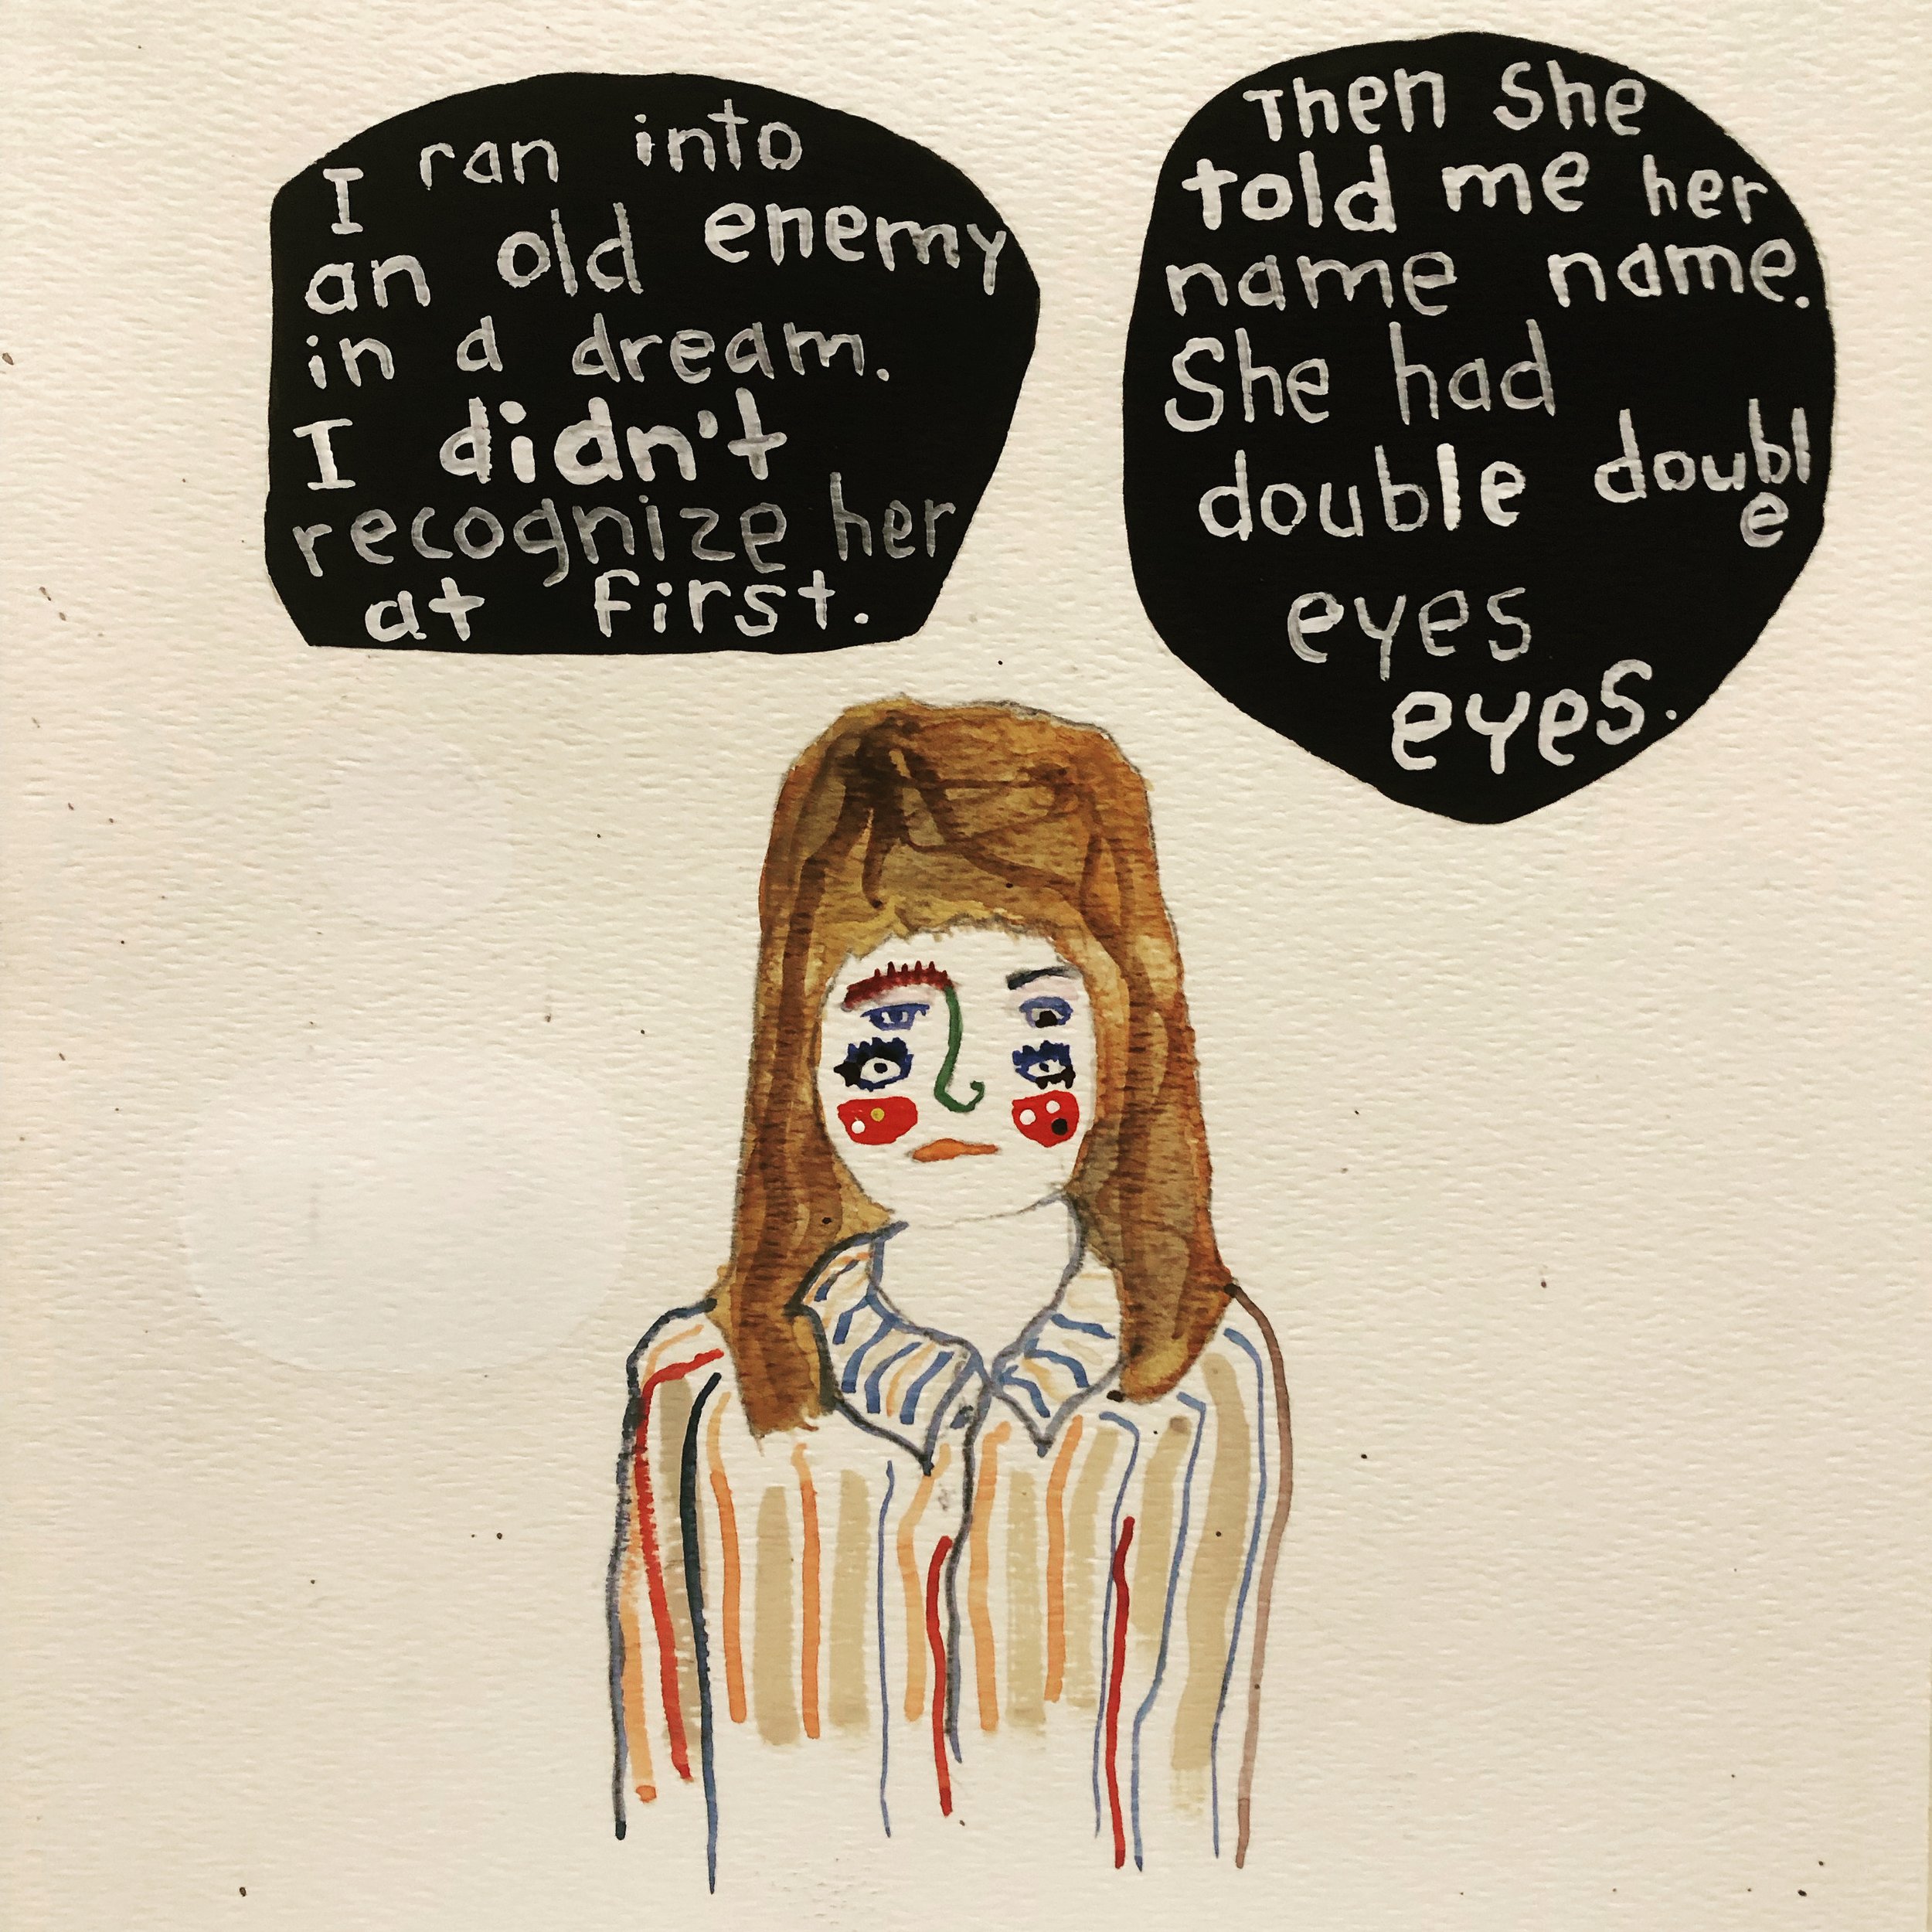 I ran into
an old enemy
in a dream.
I didn't
recognize her
at first.
Then She
told me her
name name.
She had
double double
eyes
eyes.